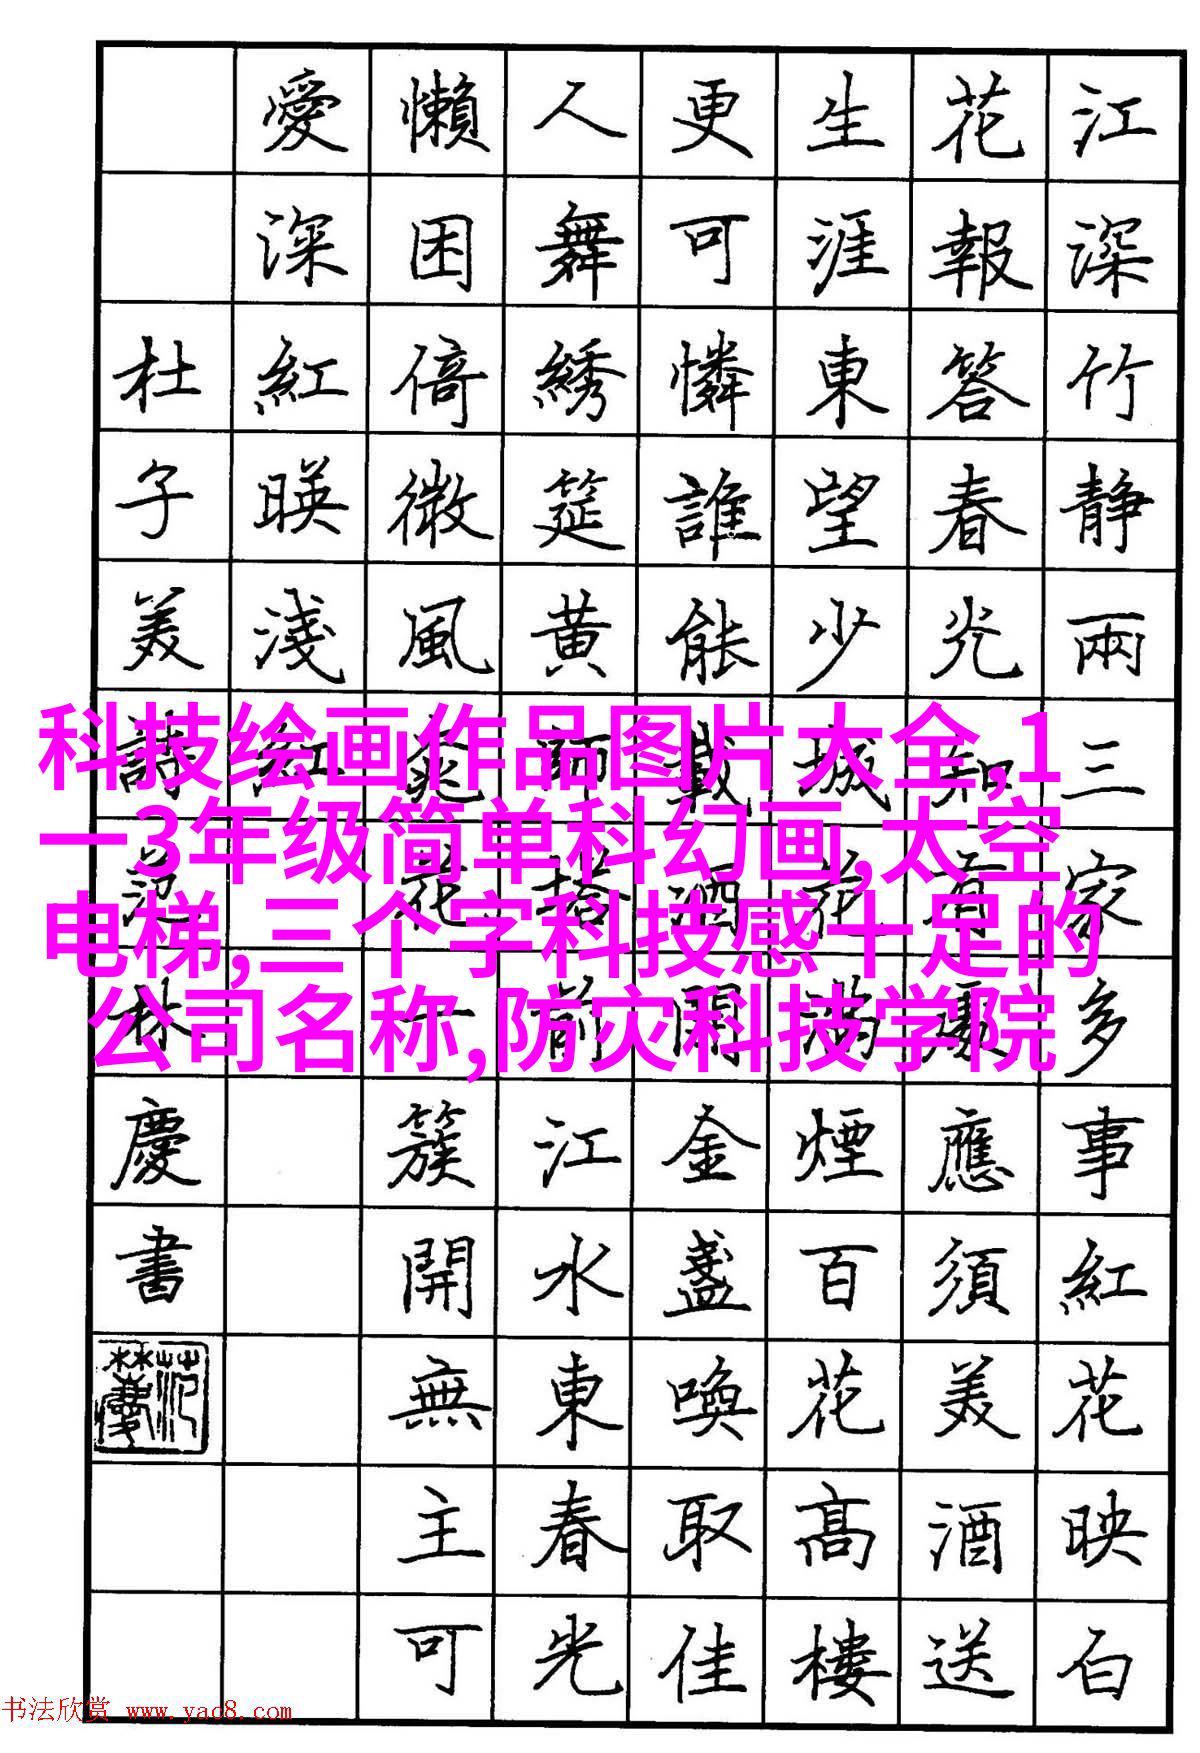 江深竹静兩三家多事紅花映白
花報答春光知有處應須美酒送
生涯東望少城花滿煙百花高樓
更可憐誰能載酒開金盞喚取佳
人舞綉筵黄師塔前江水東春光
懶困倚微風桃花一簇開無主可
愛深紅暎淺紅
杜子美詩范林慶書
科技绘画作品图片大全,1
一3年级简单科幻画,太空
电梯,三个字科技感十足的
公司名称,防灾科技学院
书法欣赏 www.yac8.com